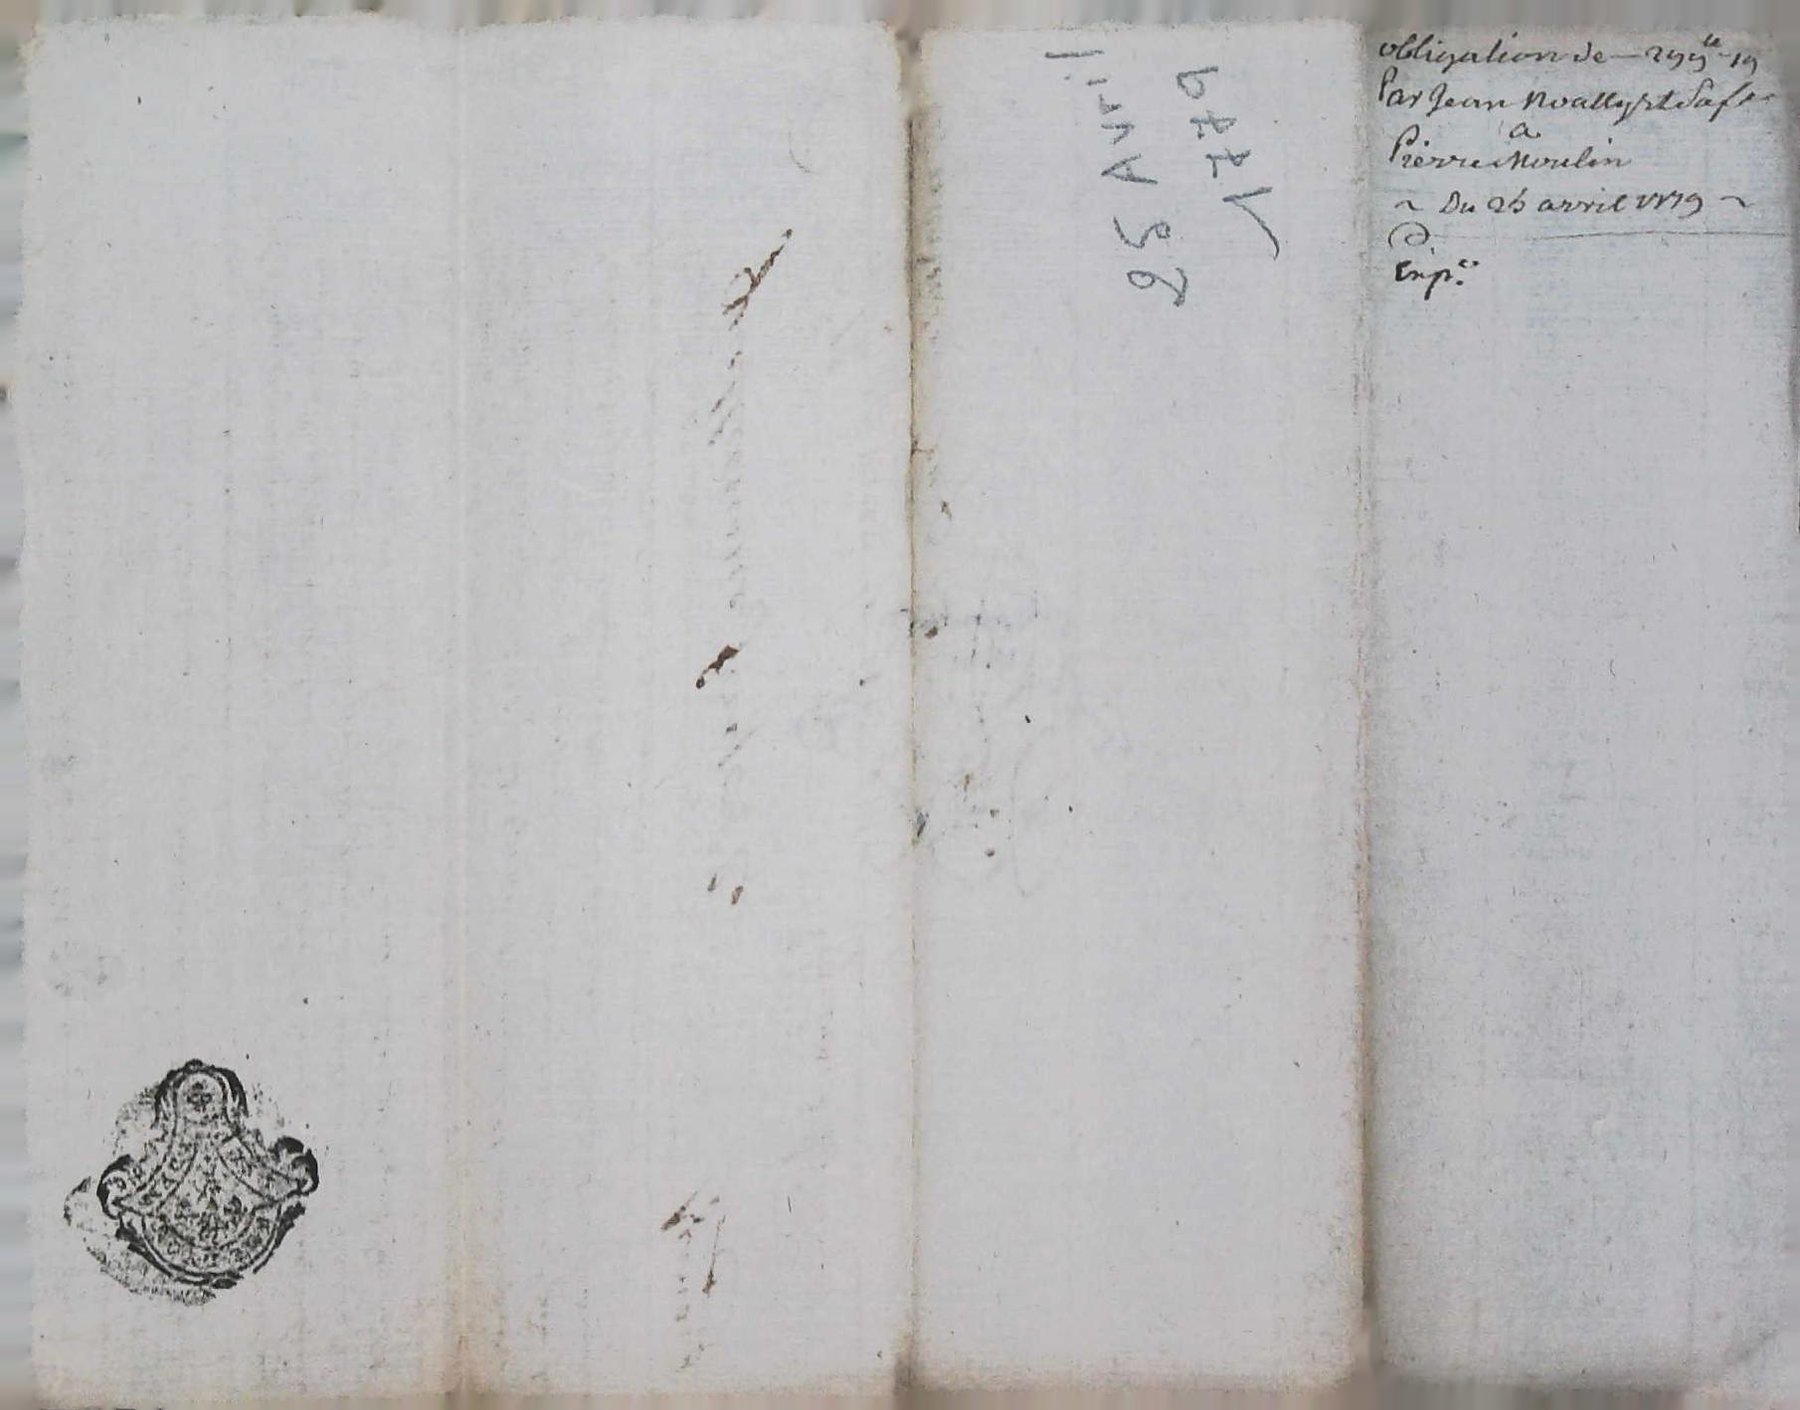 obligation de — 299ᵗᵗ 19
Par Jean Noally et Sa fe
a
Pierre Moulin
~ Du 26 avril 1779 ~
Exp.
26 Avril
1779